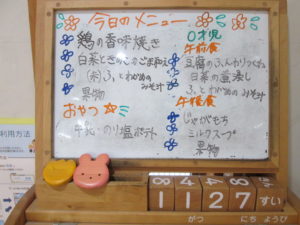 今日のメニュー
鶏の香味焼き
白菜ときのこのごま和え
(米)ふとわかめの
みそ汁
果物
おやつ
牛乳・のり塩ポテト
0才児
午前食
豆腐のふんわりつくね
白菜の煮浸し
ふとわかめのみそ汁
午後食
じゃがもち
ミルクスープ
果物
利用方法
11 27 すい
がつ にち ようび